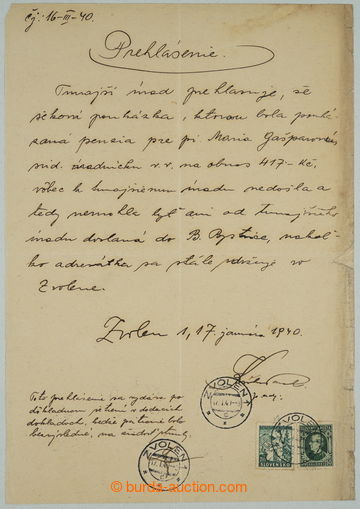 čj: 16-III-40.
Prehlásenie.
Tunajší úrad prehlasuje, že
šeková poukážka, ktorou bola pouká-
zaná penzia pre pí Maria Gašparová
úradníčku v.v. na obnos 417.- Kč,
vôbec k tunajšiemu úradu nedošla a
tedy nemohla byť ani od tunajšieho
úradu doslaná do B. Bystrice, nakoľ-
ko adresátka sa stále zdržuje vo
Zvolene.
Zvolen 1, 17. januára 1940.
Toto prehlásenie sa vydáva po
dôkladnom šetrení v dodacích
dokladoch, keďže pátranie bolo
bezvýsledné, na žiadosť strany.
ZVOLEN 1
ZVOLEN 1
SLOVENSKO
© burda-auction.com